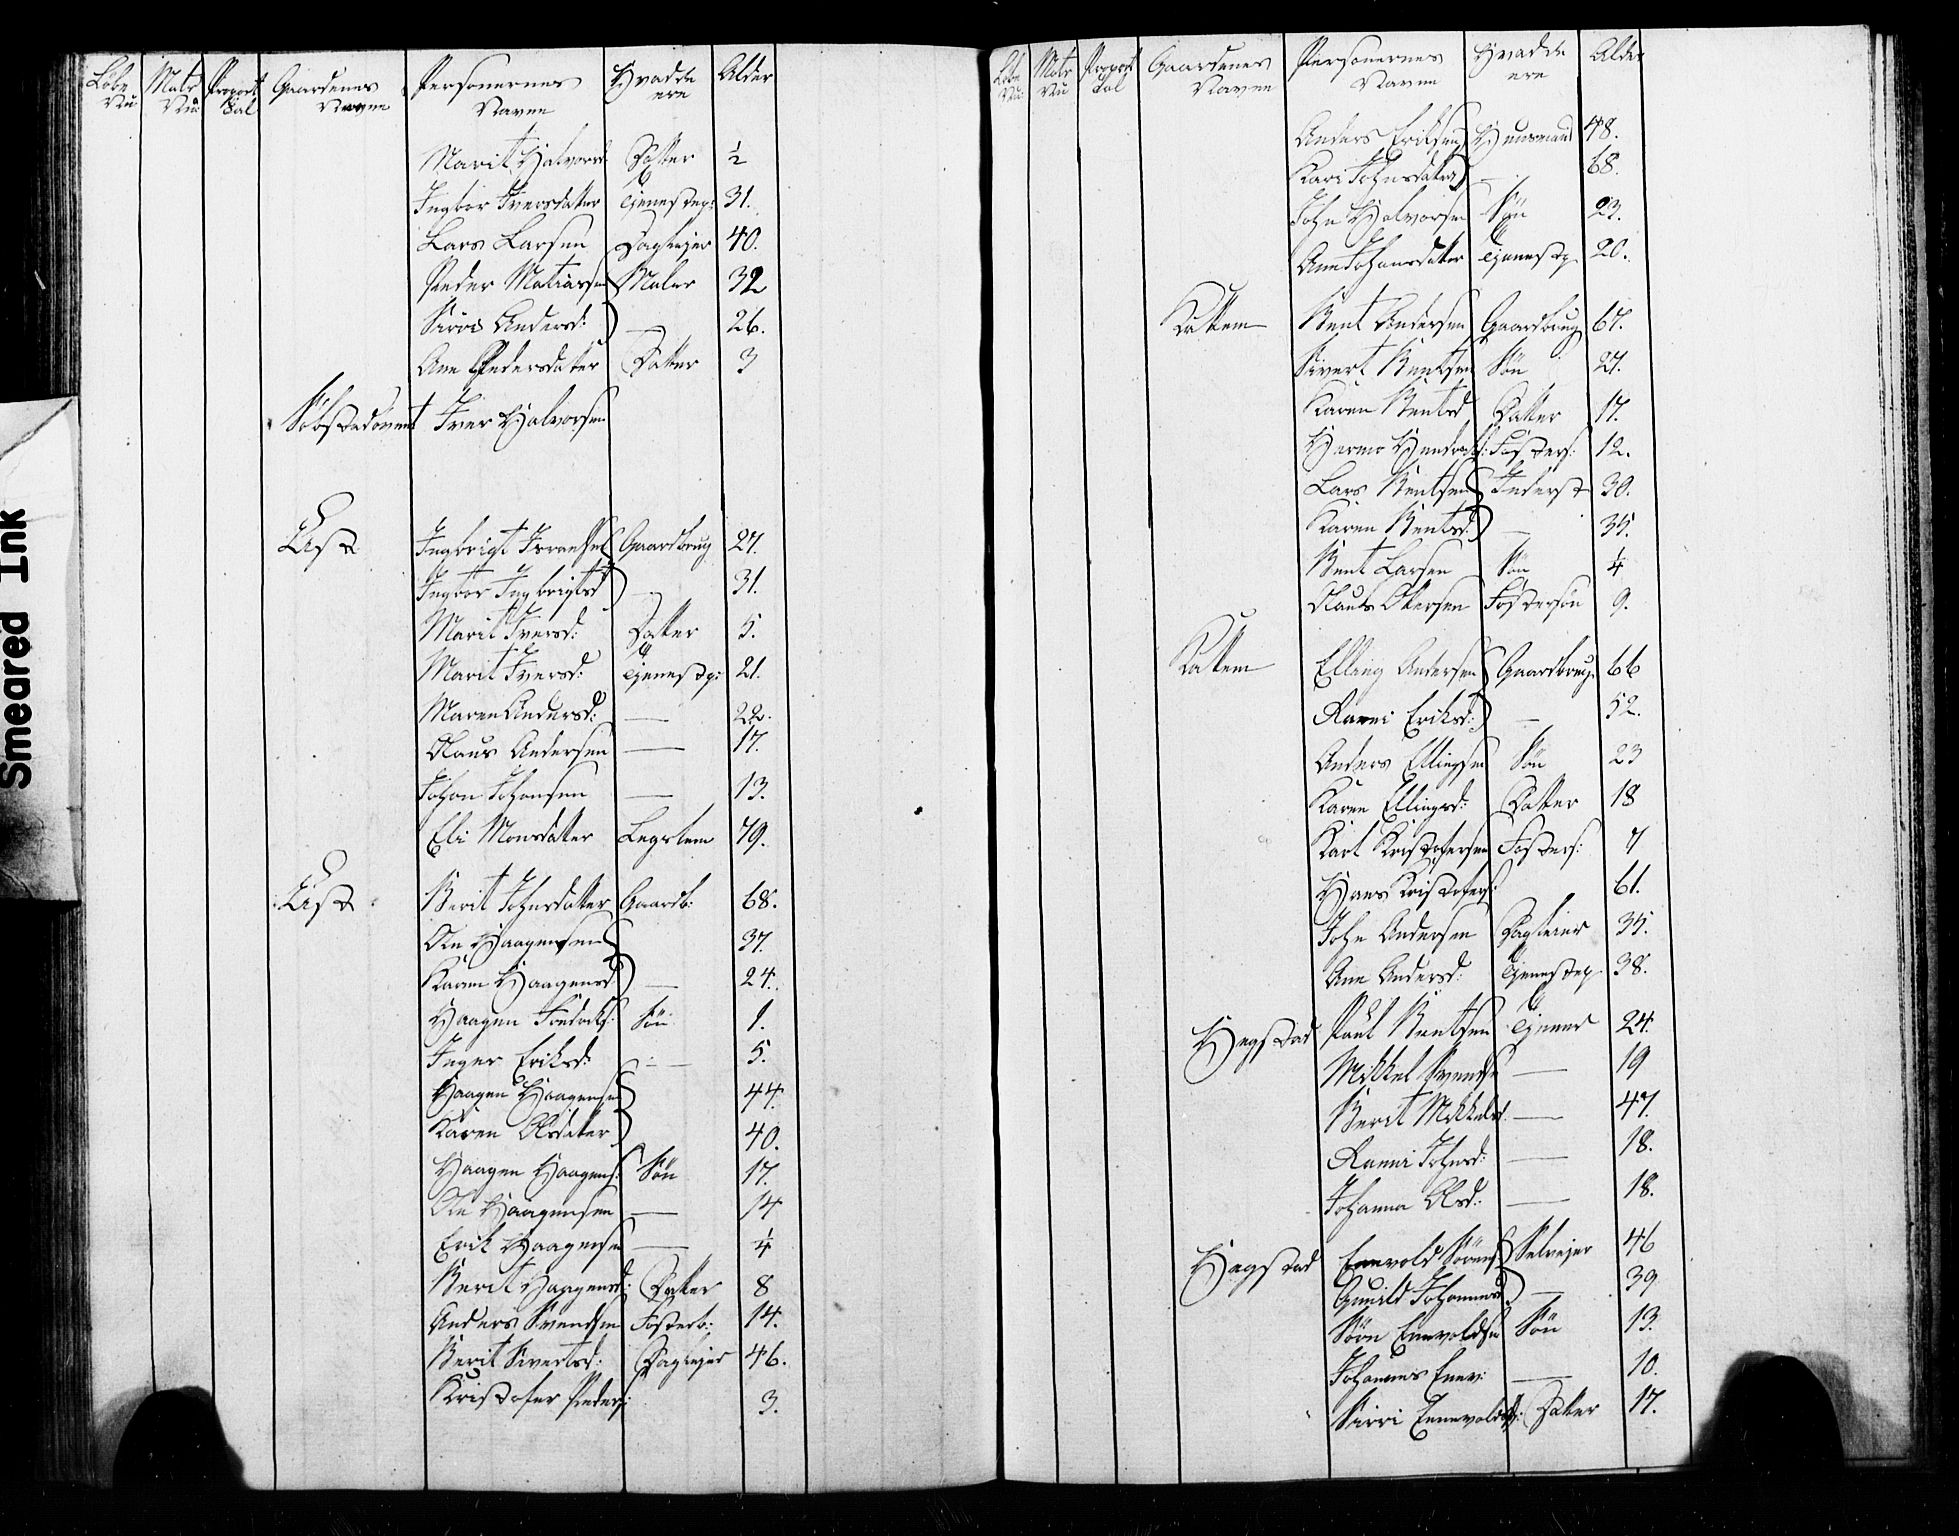 Smeared Ink
Løbe Nu: Matr Nu: Proport Tal Gaardenes Navne Personernes Navne Hvad de ere Alder
Marit Halvorsd: Datter ½
Ingbor Iversdatter Tjenestep: 31.
Lars Larsen Daglejer 40.
Peder Matiasen Maler 32
Sirri Andersd: — 26.
Ane Pedersdatter Datter 3
Iver Halvorsen
Ust Ingbrigt Gaardbrug 27.
Ingbor Ingbrigtsd — 31.
Marit Iversd: Datter 5.
Marit Iversd: Tjenestep: 21.
Maren Andersd: — 22.
Olaus Andersen — 17.
Johan Johansen — 13.
Eli Monsdatter Legslem 79.
Ust Berit Johnsdatter Gaardb: 68.
Ole Haagensen 37.
Karen Haagensd — 24.
Haagen Søn 1.
Inger Eriksd: — 5.
Haagen Haagensen 44.
Karen Olsdatter 40.
Haagen Haagens: Søn 17.
Ole Haagensen — 14
Erik Haagensen — ¼
Berit Haagensd: Datter 8
Anders Svendsen Fosterb: 14.
Berit Sivertsd: Daglejer 46.
Kristofer Peders: 3.
Løbe Nu: Matr Nu Proport Tal Gaardenes Navne Personernes Navne Hvad de ere Alder
Anders Eriksen Huusmand 48.
Kari Johnsdatter — 68.
John Halvorsen Søn 23.
Ane Johansdatter Tjenestp. 20.
Kattem Bent Andersen Gaardbrug 67.
Sivert Bentsen Søn 27.
Karen Bentsd Datter 17.
Fosters: 12.
Lars Bentsen Inderst 30.
Karen Bentsd: — 35.
Bent Larsen Søn ¼
Olaus Olersen Fostersøn 9.
Kattem Elling Andersen Gaardbrug. 66
Ranni Eriksd: — 52.
Anders Ellingsen Søn 23
Karen Ellingsd: Datter 18
Karl Kristofersen Fosters: 7
Hans Kristofers: 61.
John Andersen Dagleier 35.
Ane Andersd: Tjenestep 38.
Hegstad Paul Bentsen Tjener 24.
Mikkel Svends — 19
Berit Mikkelsd — 47.
Ranni Johnsd: — 18.
Johanna Olsd: — 18.
Hegstad Ennvold Sørens: Selvejer 46
Gunild Johannesd — 39
Sørn Ennvoldsen Søn 13.
Johannes Ennv: — 10.
Sirri Ennevoldsd: Datter 17.